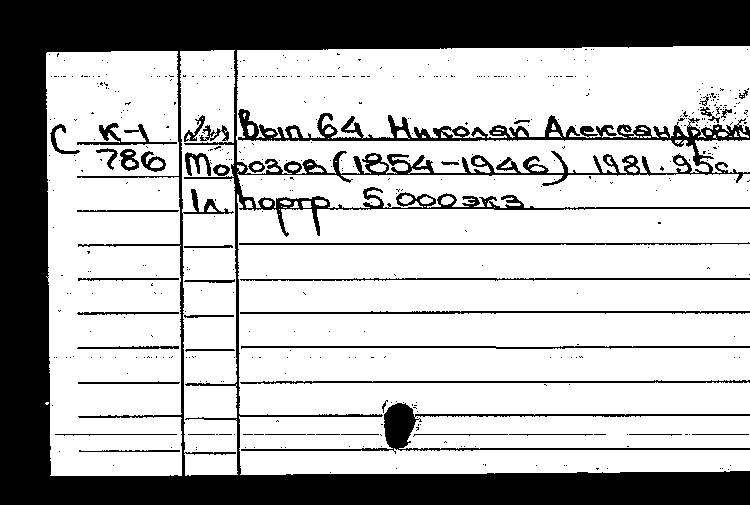 С К-1 Вып. 64. Николай Александрович
786 Морозов (1854-1946). 1981. 95с.,
1л. портр. 5.000 экз.